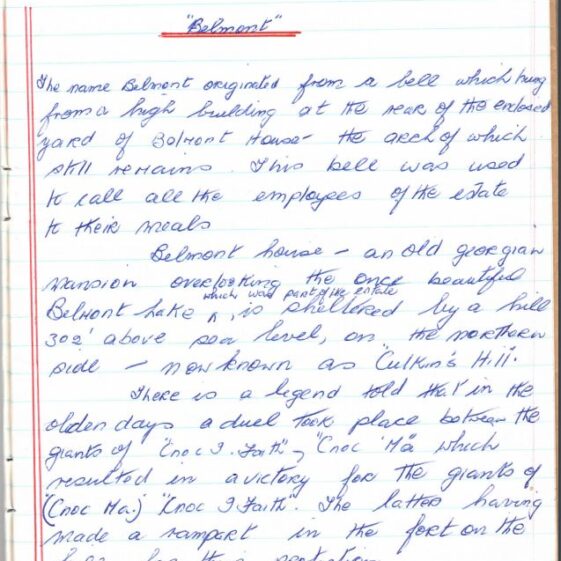 "Belmont"
The name Belmont originated from a bell which hung
from a high building at the rear of the enclosed
yard of Belmont House - the arch of which
still remains. This bell was used
to call all the employees of the estate
to their meals
Belmont house - an old georgian
mansion overlooking the once beautiful
which was part of the estate
Belmont Lake ^, is sheltered by a hill
302' above sea level, on the northern
side - now known as "Culkin's Hill".
There is a legend told that in the
olden days a duel took place between the
giants of "Cnoc I. Faith" "Cnoc 'Ma" which
resulted in a victory for the giants of
(Cnoc Ma.) "Cnoc I Faith". The latter having
made a rampart in the fort on the
for their protection